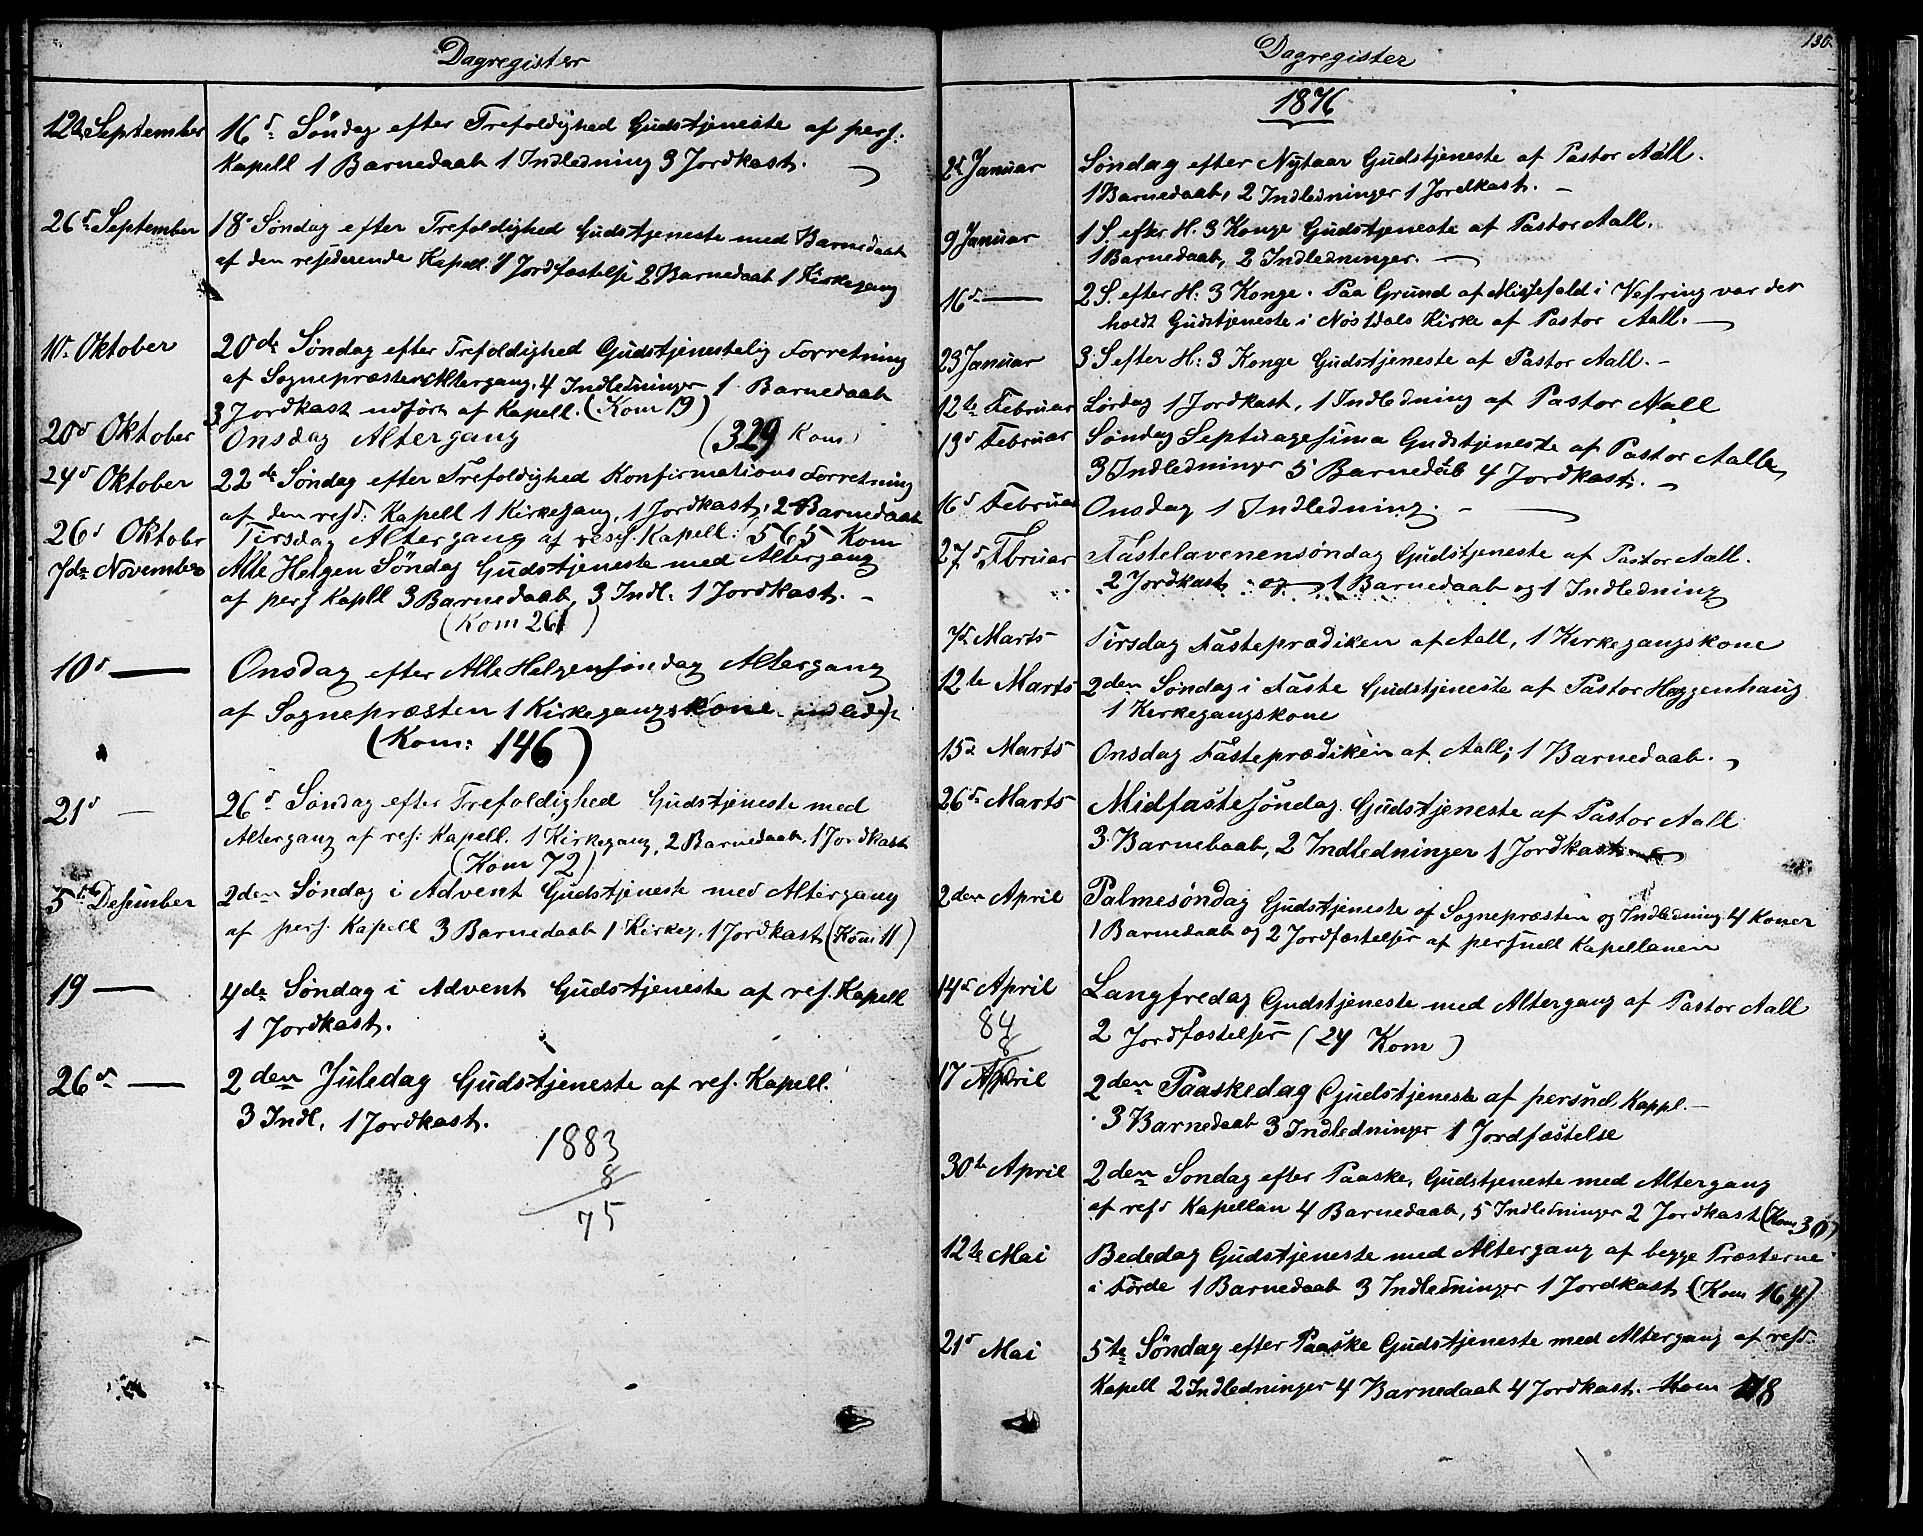 Dagregister
12te September 16d Søndag efter Trefoldighed Gudstjeneste af pers.
Kapell 1 Barnedaab 1 Indledning 3 Jordkast.
26d September 18de Søndag efter Trefoldighed Gudstjeneste med Barnedaab
af den residerende Kapell. 1 Jordfæstelse 2 Barnedaab 1 Kirkegang
10d Oktober 20de Søndag efter Trefoldighed Gudstjenestelig Forretning
af Sognepræsten Altergang. 4 Indledninger 1 Barnedaab
3 Jordkast udført af Kapell. (Kom 19)
20d Oktober Onsdag Altergang (329 Kom)
24d Oktober 22de Søndag efter Trefoldighed Konfirmations Forretning
af den resd. Kapell 1 Kirkegang, 1 Jordkast, 2 Barnedaab
26d Oktobr Tirsdag Altergang af resd. Kapell: 565 Kom
7de November Alle Helgen Søndag Gudstjeneste med Altergang
af pers Kapll 3 Barnedaab, 3 Indl. 1 Jordkast. -
(Kom 261)
10d — Onsdag efter Alle Helgensøndag Altergang
af Sognepræsten 1 Kirkegangskone indledet
(Kom: 146)
21d — 26d Søndag efter Trefoldighed Gudstjeneste med
Altergang af res: Kapell. 1 Kirkegang, 2 Barnedaab, 1 Jordkast
(Kom 72)
5te Desember 2den Søndag i Advent Gudstjeneste med Altergang
af pers. Kapell 3 Barnedaab 1 Kirkeg. 1 Jordkast (Kom 11)
19 — 4de Søndag i Advent Gudstjeneste af res. Kapell
1 Jordkast.
26d — 2den Juledag Gudstjeneste af res. Kapell.
3 Indl, 1 Jordkast.
1883
8
75
Dagregister 136.
1876
2d Januar Søndag efter Nytaar Gudstjeneste af Pastor Aall.
1 Barnedaab, 2 Indledninger 1 Jordkast. -
9 Januar 1 S. efter H. 3 Konge Gudstjeneste af Pastor Aall.
1 Barnedaab, 2 Indledninger. —
16d — 2 S. efter H: 3 Konge. Paa Grund af Missefald i Vefring var der
holdt Gudstjeneste i Nøstdals Kirke af Pastor Aall. —
23 Januar 3 S efter H: 3 Konge Gudstjeneste af Pastor Aall. -
12te Februar Lørdag 1 Jordkast, 1 Indledning af Pastor Aall
13d Februar Søndag Septuagesima Gudstjeneste af Pastor Aall
3 Indledninger 5 Barnedåb 4 Jordkast. -
16d Februar Onsdag 1 Indledning. -
27d Februar Fastelavenensøndag Gudstjeneste af Pastor Aall.
2 Jordkast og 1 Barnedaab og 1 Indledning
7d Marts Tirsdag Fasteprædiken af Aall, 1 Kirkegangskone
12te Marts 2den Søndag i Faste Gudstjeneste af Pastor Heggenhaug
1 Kirkegangskone
15d Marts Onsdag Fasteprædiken af Aall; 1 Barnedaab.
26d Marts Midfastesøndag Gudstjeneste af Pastor Aall
3 Barnebaab, 2 Indledninger 1 Jordkast
2den April Palmesøndag Gudstjeneste af Sognepræsten og Indledning 4 Koner
1 Barnedaab og 2 Jordfæstelser af persuell Kapellanen
14d April Langfredag Gudstjeneste med Altergang af Pastor Aall
84 2 Jordfæstelser (24 Kom)
8
17 April 2den Paaskedag Gudstjeneste af persnel Kappl. —
3 Barnedaab 3 Indledninger 1 Jordfæstelse
30te April 2den Søndag efter Paaske, Gudstjeneste med Altergang
af resd Kapellan 4 Barnedaab, 5 Indledninger 2 Jordkast (Kom 30)
12te Mai Bededag Gudstjeneste med Altergang af begge Præsterne
i Førde 1 Barnedaab 3 Indledninger 1 Jordkast (Kom 164)
21d Mai 5te Søndag efter Paaske Gudstjeneste med Altergang af resd.
Kapell 2 Indledninger 4 Barnedaab 4 Jordkast. Kom